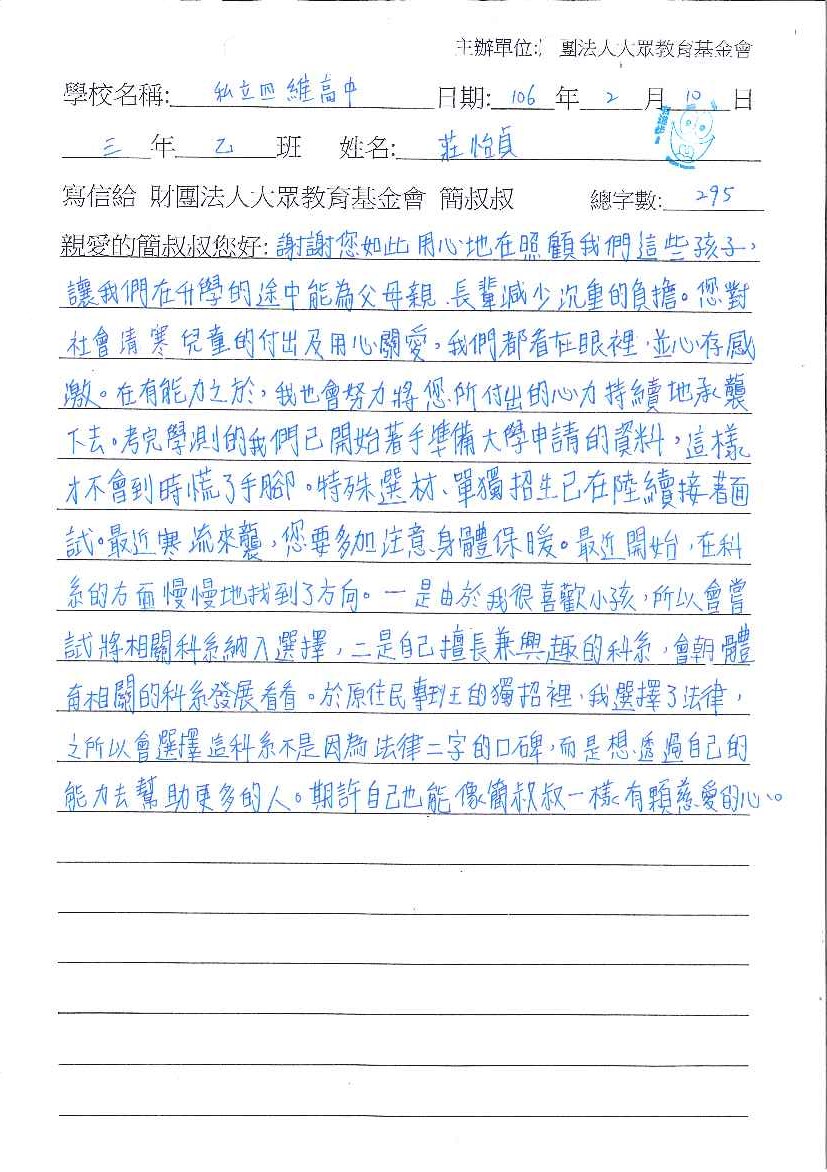 主辦單位: 團法人大眾教育基金會
學校名稱: 私立四維高中 日期: 106 年 2 月 10 日
三 年 乙 班 姓名: 莊怡貞
寫信給 財團法人大眾教育基金會 簡叔叔 總字數: 295
親愛的簡叔叔您好: 謝謝您如此用心地在照顧我們這些孩子,
讓我們在升學的途中能為父母親、長輩減少沉重的負擔。您對
社會清寒兒童的付出及用心關愛,我們都看在眼裡,並心存感
激。在有能力之於,我也會努力將您所付出的心力持續地承襲
下去。考完學測的我們已開始著手準備大學申請的資料,這樣
才不會到時慌了手腳。特殊選材、單獨招生已在陸續接著面
試。最近寒流來襲,您要多加注意身體保暖。最近開始,在科
系的方面慢慢地找到了方向。一是由於我很喜歡小孩,所以會嘗
試將相關科系納入選擇,二是自己擅長兼興趣的科系,會朝體
育相關的科系發展看看。於原住民專班的獨招裡,我選擇了法律,
之所以會選擇這科系不是因為法律二字的口碑,而是想透過自己的
能力去幫助更多的人。期許自己也能像簡叔叔一樣有顆慈愛的心。